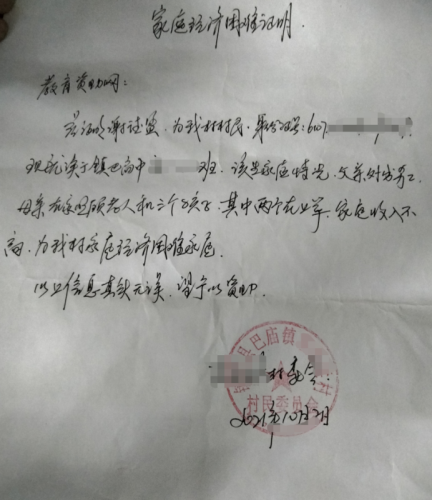 家庭经济困难证明
教育资助网：
兹证明谢 为我村村民，身份证号：6107
现就读于镇巴高中 班，该生家庭情况，父亲外出务工
母亲在家照顾老人和三个孩子，其中两个在上学，家庭收入不
高，为我村家庭经济困难家庭。
以上信息真实无误，望予以资助。
县巴庙镇 村
村民委员会
村委会
2021年10月2日